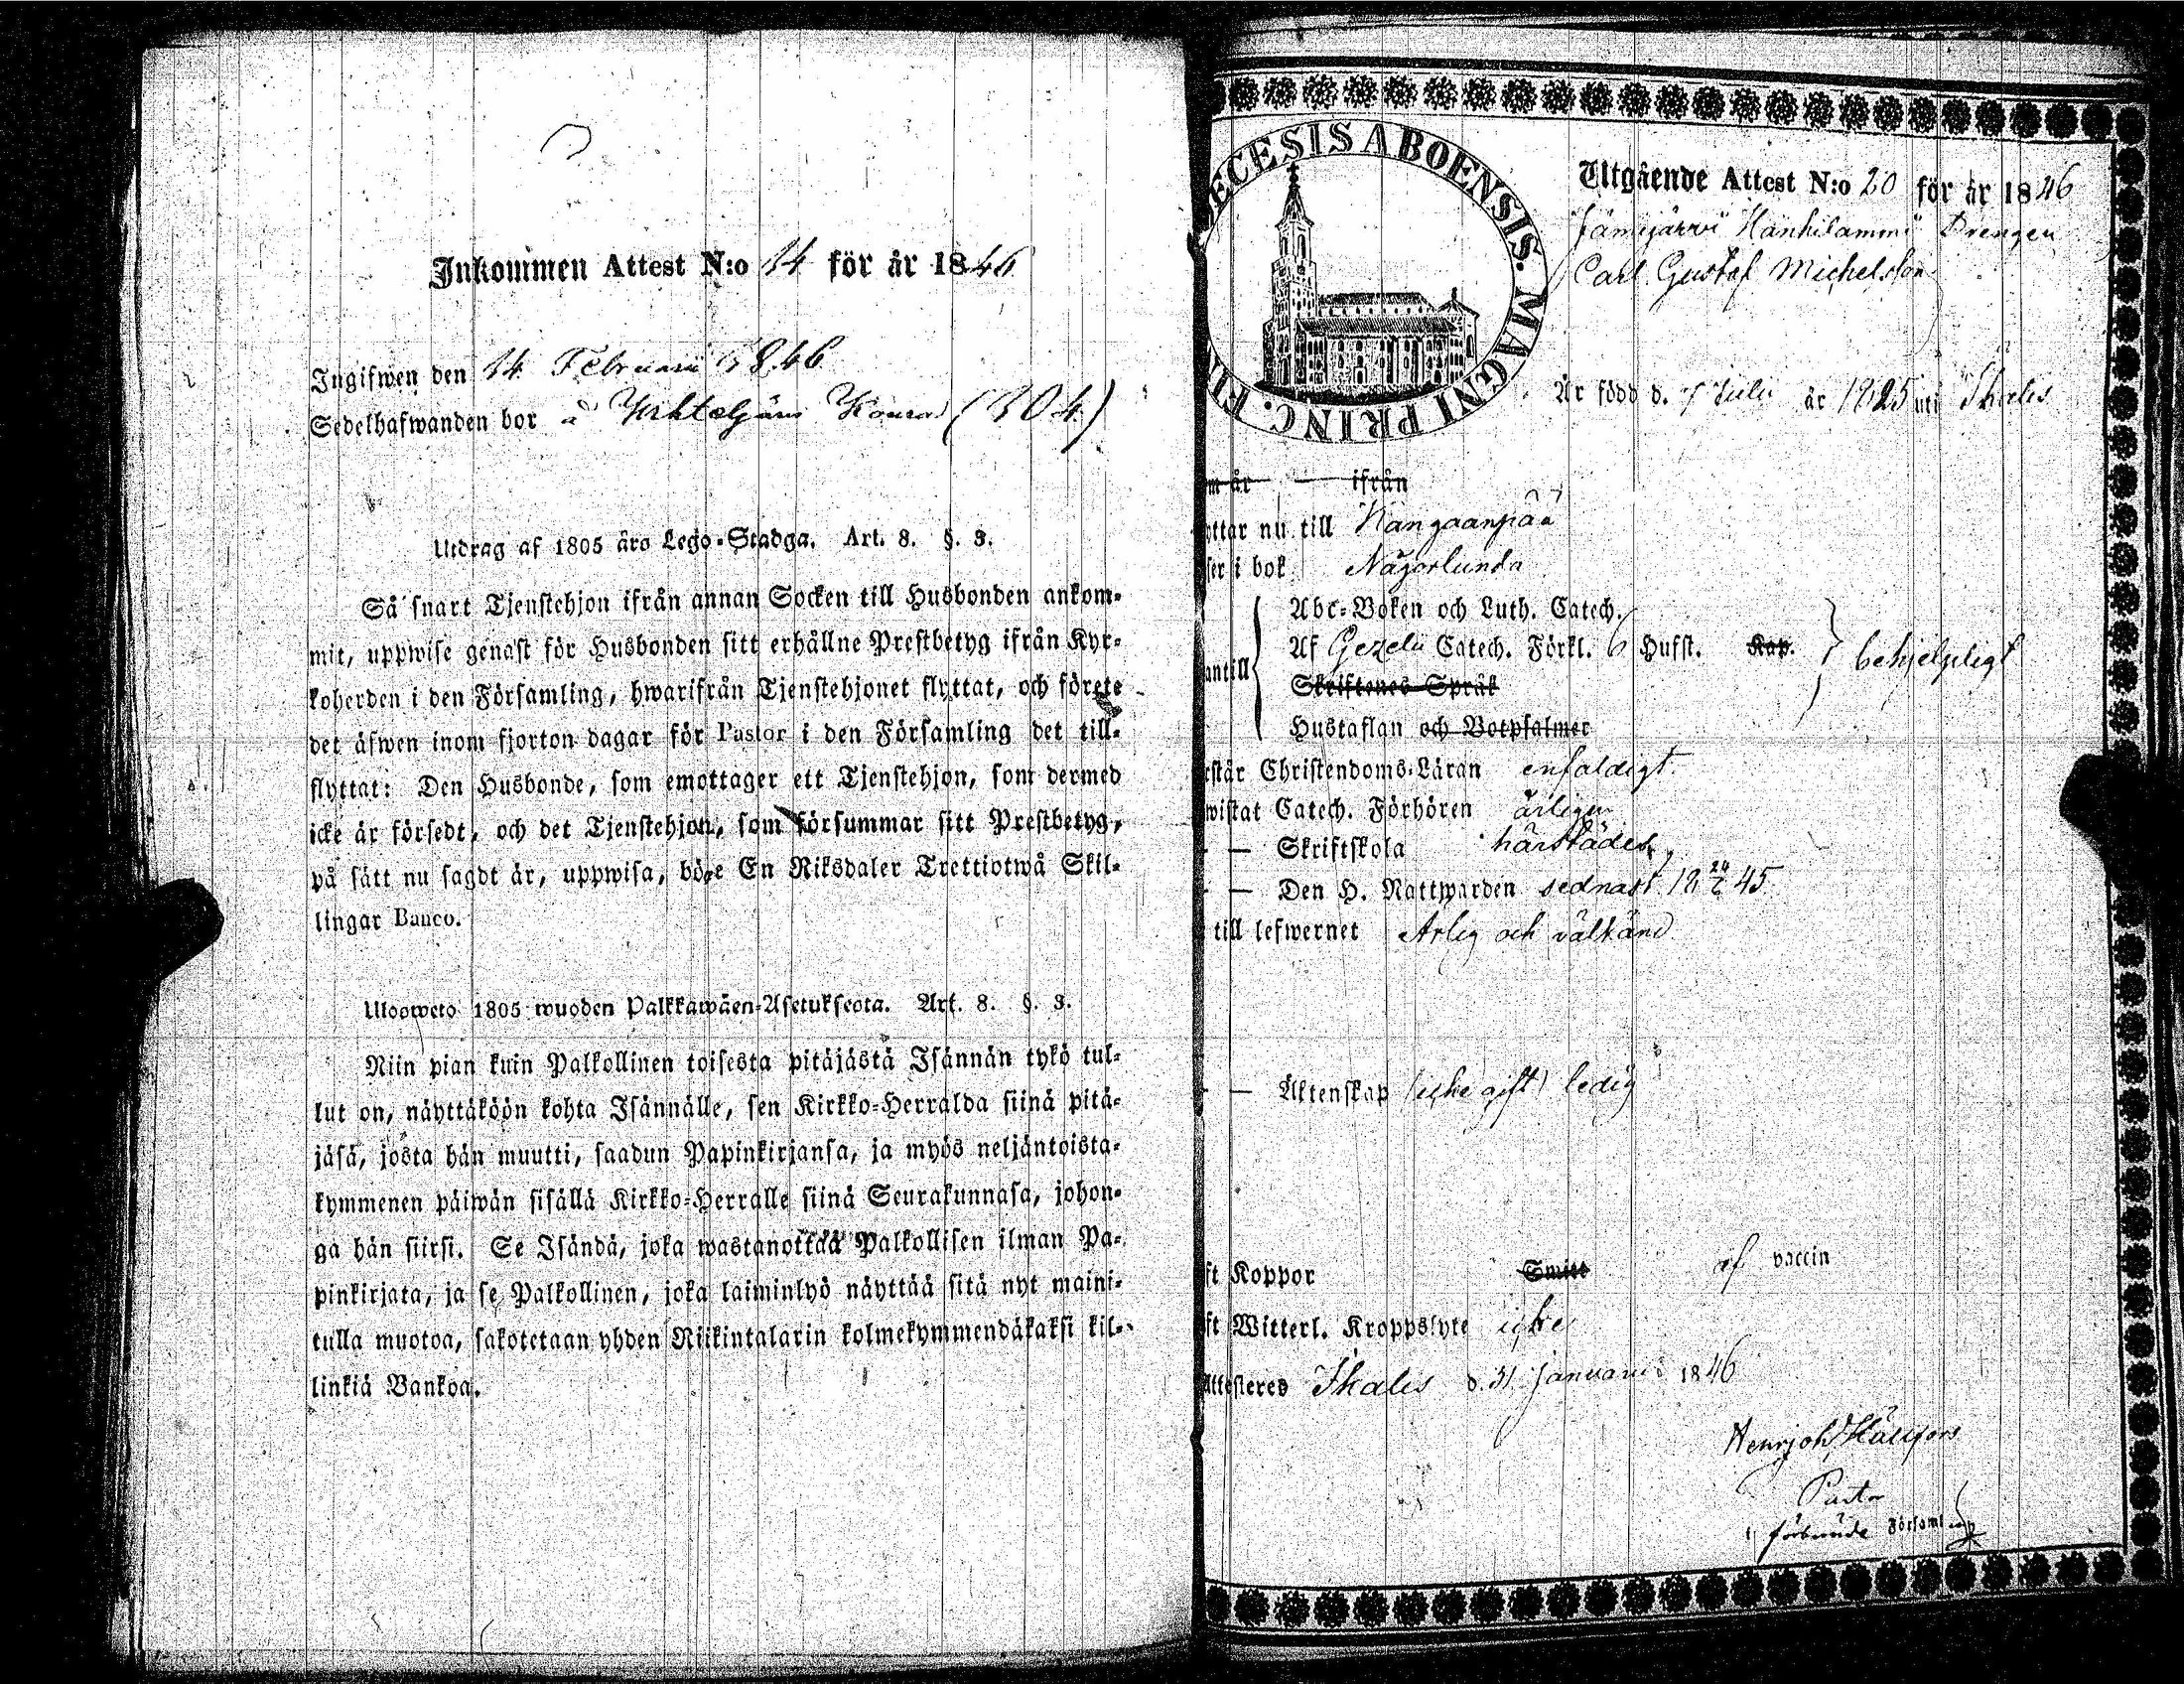 Inkommen Attest N:o 14 för år 1846
Ingifwen den 14 Februarii 1846
Sedelhafwanden bor å Konrad (304)
Utdrag af 1805 års Lego-Stadga. Art. 8. §. 3.
Så snart Tjenstehjon ifrån annan Socken till Husbonden ankom-
mit, uppwise genast för Husbonden sitt erhållne Prestbetyg ifrån Kyr-
koherden i den Församling, hwarifrån Tjenstehjonet flyttat, och förete
det äfwen inom fjorton dagar för Pastor i den Församling det till-
flyttat: Den Husbonde, som emottager ett Tjenstehjon, som dermed
icke är försedt, och det Tjenstehjon, som försummar sitt Prestbetyg,
på sätt nu sagdt är, uppwisa, böte En Riksdaler Trettiotwå Skil-
lingar Banco.
Ulosweto 1805 wuoden Palkkawäen-Asetuksesta. Art. 8. §. 3.
Niin pian kuin Palkollinen toisesta pitäjästä Isännän tykö tul-
lut on, näyttäköön kohta Isännälle, sen Kirkko-Herralda siinä pitä-
jäsä, josta hän muutti, saadun Papinkirjansa, ja myös neljäntoista-
kymmenen päiwän sisällä Kirkko-Herralle siinä Seurakunnasa, johon-
ga hän siirsi. Se Isändä, joka wastanottaa Palkollisen ilman Pa-
pinkirjata, ja se Palkollinen, joka laiminlyö näyttää sitä nyt maini-
tulla muotoa, sakotetaan yhden Riikintalarin kolmekymmendäkaksi kil-
linkiä Bankoa.
ECESIS ABOENSIS. MAGNI PRINC. FI
Utgående Attest N:o 20 för år 1846
Jämijärvi Hanhilammi Drengen
Carl Gustaf Michelsson
Är född d. 7 Julii år 1825 uti Ikalis
m år ifrån
yttar nu till Kangaanpää
ser i bok Någorlunda
antill
Abc-Boken och Luth. Catech.
Af Gezelii Catech. Förkl. 6 Hufst. Kap.
Skriftenes Språk
Hustaflan och Botpsalmer
behjelpligt
rstår Christendoms-Läran enfaldigt
wistat Catech. Förhören årligen
— Skriftskola härstädes
— Den H. Nattwarden sednast 18 45
till lefwernet Ärlig och välkänd
— Äktenskap (icke gift) ledig
ft Koppor Smitt af vaccin
ft Witterl. Kroppslyte icke
Attesteres Ikalis d. 31 Januarii 1846
Pastor
förbemäldte Församling